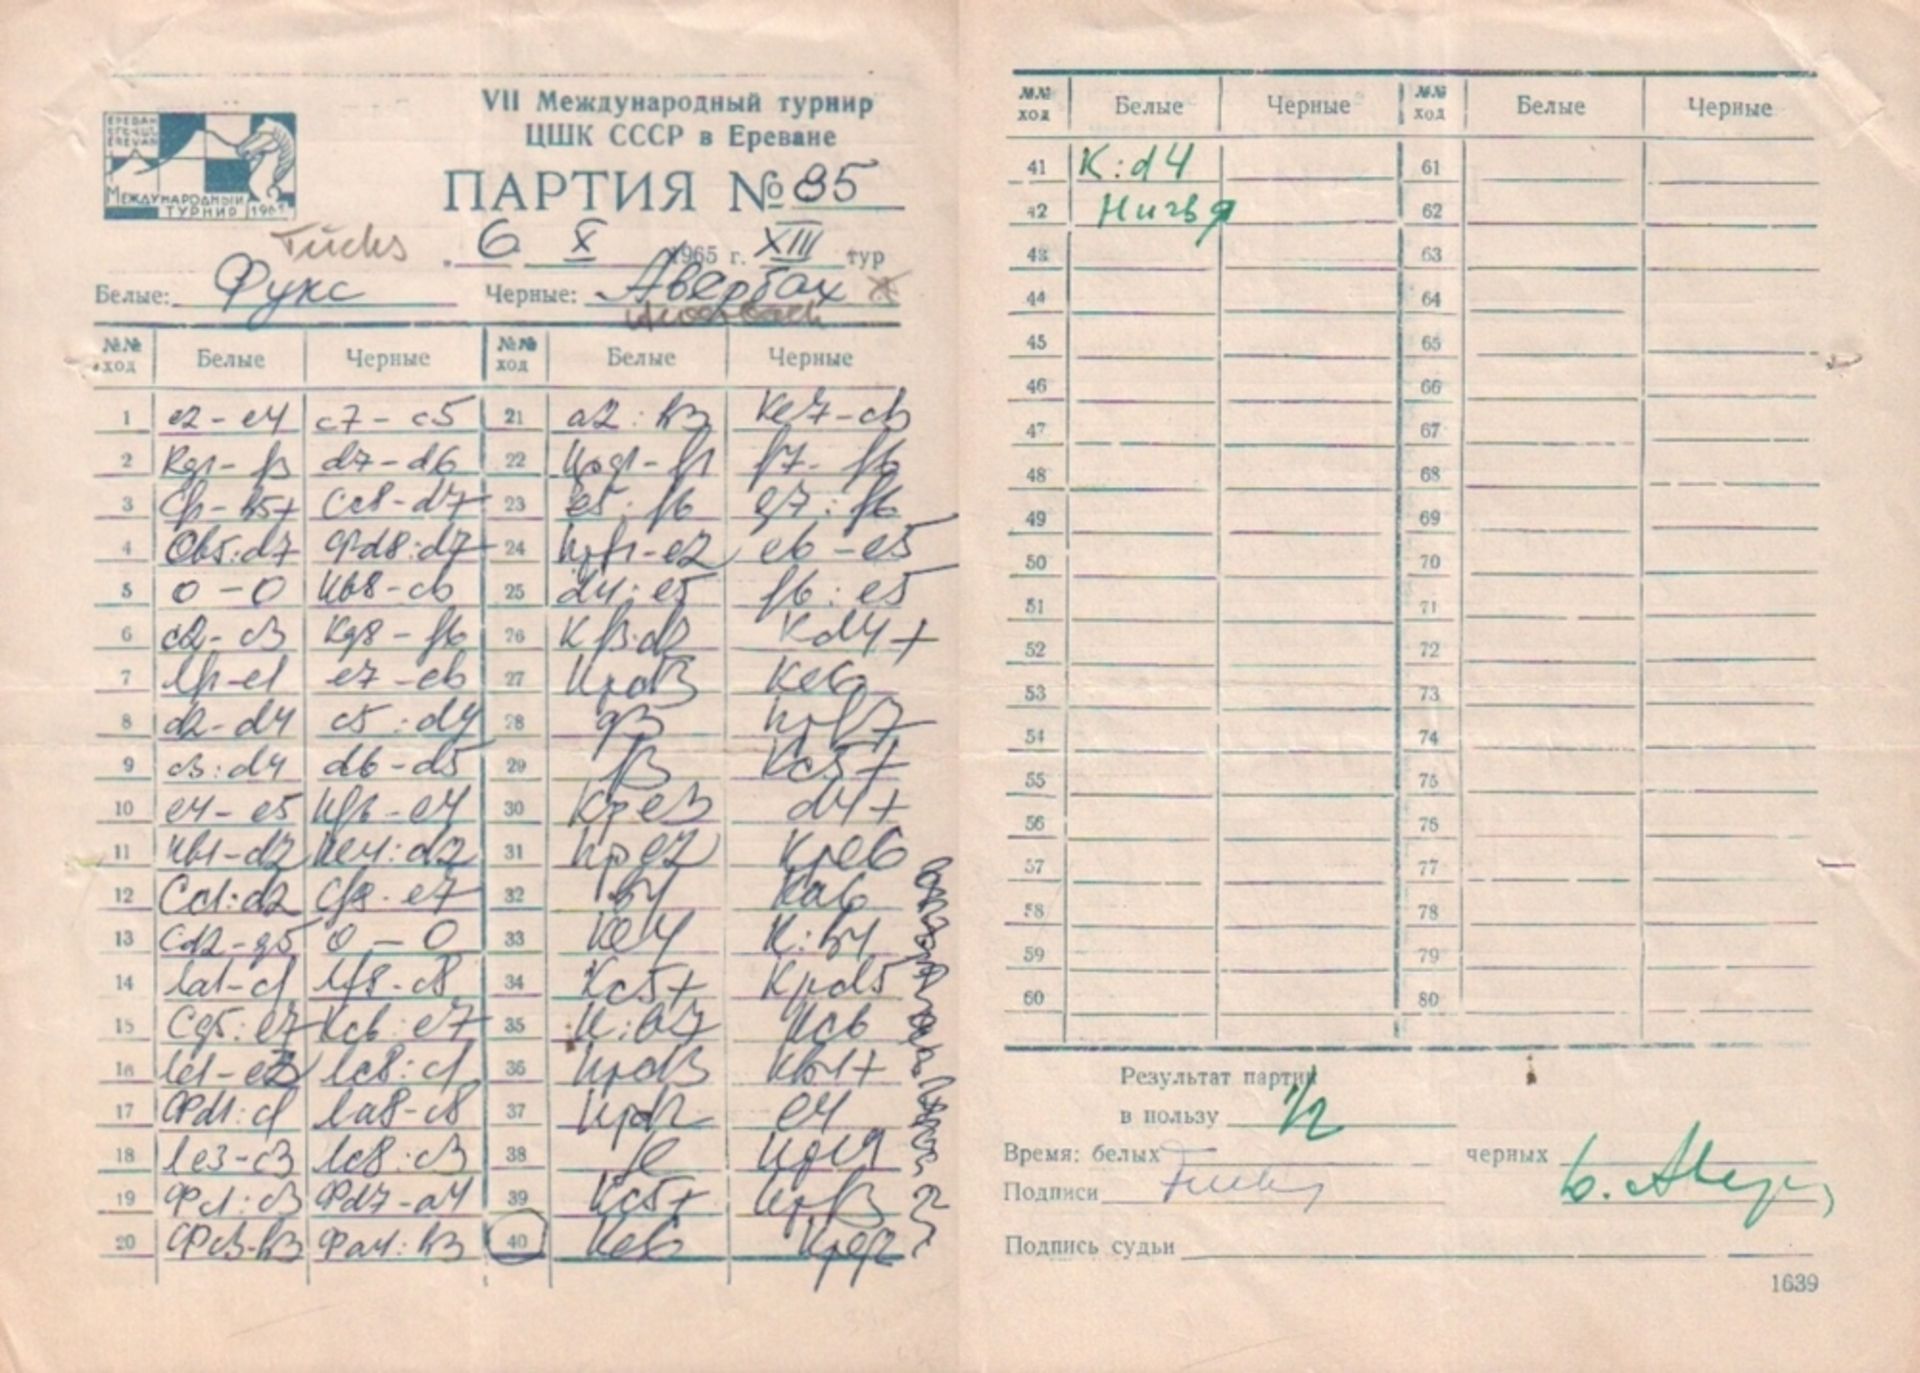 VII Международный турнир
ЦШК СССР в Ереване
EREVAN
МЕЖДУНАРОДНЫЙ
ТУРНИР 1965
ПАРТИЯ № 85
Fuchs
6 X 1965 г. XIII тур
Белые: Фукс Черные: Авербах
№№ ход Белые Черные №№ ход Белые Черные
1 e2 - e4 c7 - c5 21 a2 : b3 Ke7 - c6
2 Kg1 - f3 d7 - d6 22 Kpg1 - f1 f7 - f6
3 Cf1 - b5+ Cc8 - d7 23 e5 : f6 g7 : f6
4 Cb5 : d7 Фd8 : d7 24 Kpf1 - e2 e6 - e5
5 0 - 0 Kb8 - c6 25 d4 : e5 f6 : e5
6 c2 - c3 Kg8 - f6 26 Kf3 : d2 Kd4+
7 Лf1 - e1 e7 - e6 27 Kpd3 Ke6
8 d2 - d4 c5 : d4 28 g3 Kpf7
9 c3 : d4 d6 - d5 29 f3 Kc5+
10 e4 - e5 Kf6 - e4 30 Kpe3 d4+
11 Kb1 - d2 Ke4 : d2 31 Kpe2 Kpe6
12 Cc1 : d2 Cf8 - e7 32 b4 Ka6
13 Cd2 - g5 0 - 0 33 Ke4 K : b4
14 Лa1 - c1 Лf8 - c8 34 Kc5+ Kpd5
15 Cg5 : e7 Kc6 : e7 35 K : b7 Kc6
16 Лe1 - e3 Лc8 : c1 36 Kpd3 Kb4+
17 Фd1 : c1 Лa8 - c8 37 Kpd2 e4
18 Лe3 - c3 Лc8 : c3 38 fe
19 Фc1 : c3 Фd7 - a4 39 Kc5+ Kpf3
20 Фc3 - b3 Фa4 : b3 40 Ke6 Kpg2
№№ ход Белые Черные №№ ход Белые Черные
41 K : d4 61
42 Ничья 62
43 63
44 64
45 65
46 66
47 67
48 68
49 69
50 70
51 71
52 72
53 73
54 74
55 75
56 76
57 77
58 78
59 79
60 80
Результат партии
в пользу 1/2
Время: белых черных
Подписи Fuchs
Подпись судьи
1639